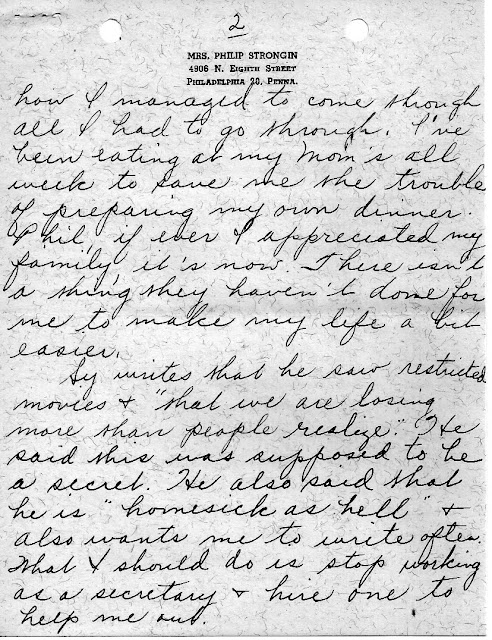 2
MRS. PHILIP STRONGIN
4906 N. EIGHTH STREET
PHILADELPHIA 20, PENNA.
how I managed to come through
all I had to go through. I've
been eating at my Mom's all
week to save me the trouble
of preparing my own dinner.
Phil, if ever I appreciated my
family, it's now. There isn't
a thing they haven't done for
me to make my life a bit
easier.
Sy writes that he saw restricted
movies & "that we are losing
more than people realize." He
said this was supposed to be
a secret. He also said that
he is "homesick as hell" &
also wants me to write often.
What I should do is stop working
as a secretary & hire one to
help me out.